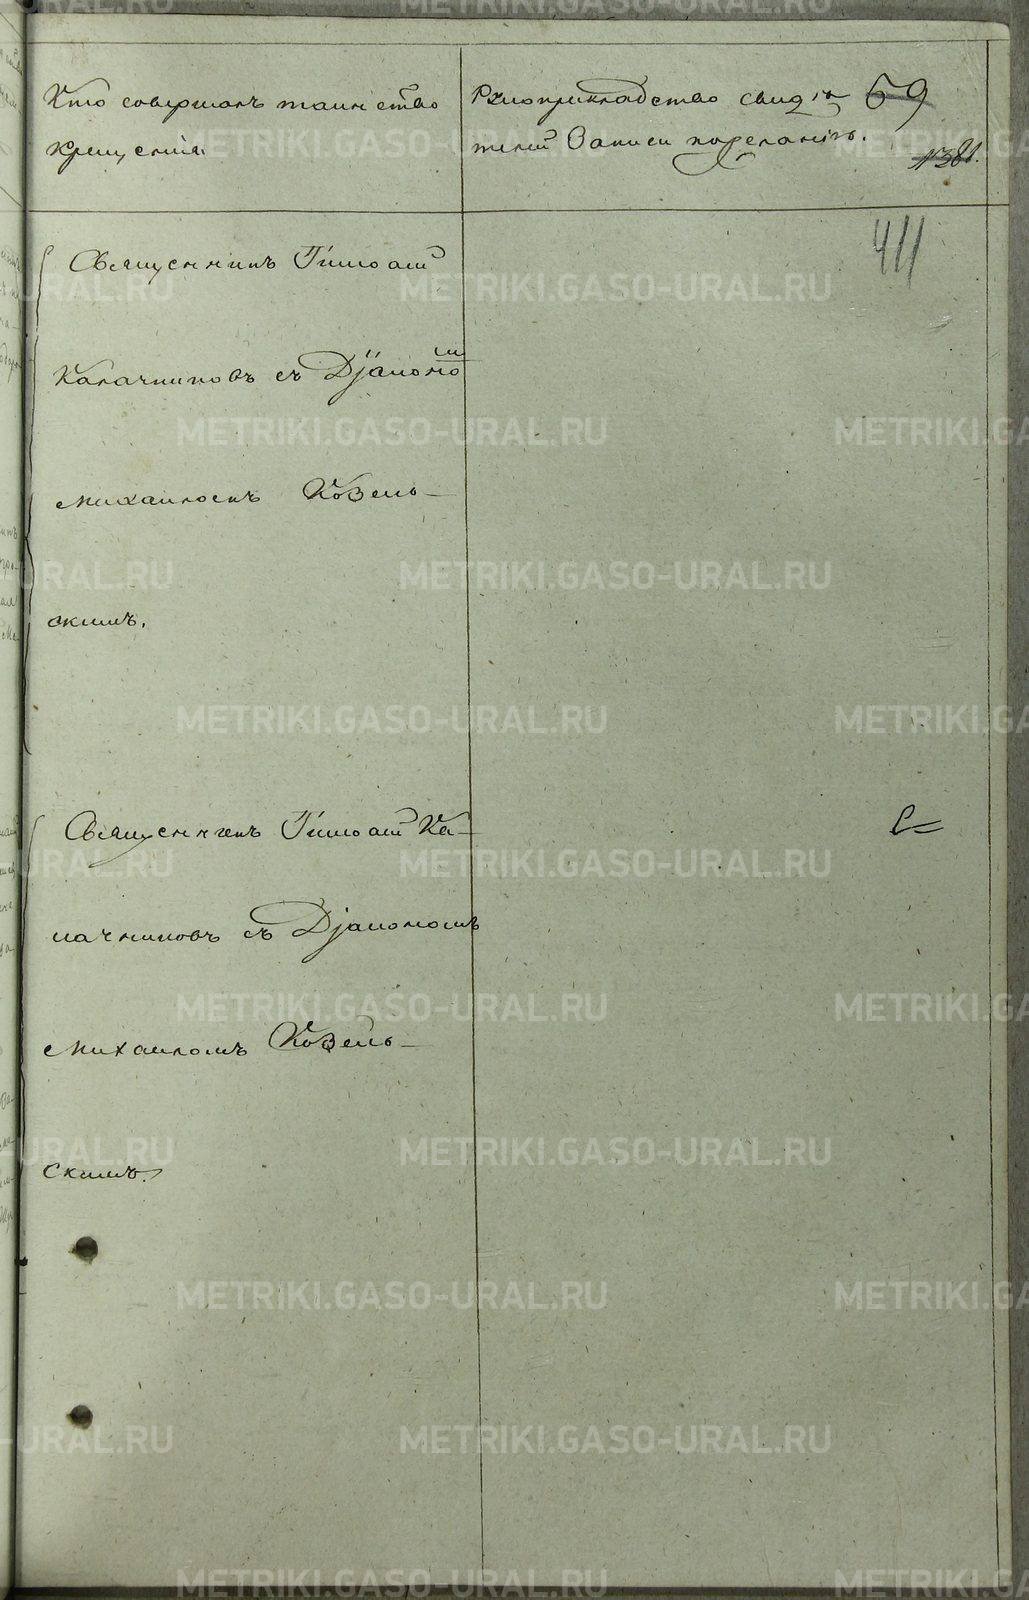 Кто совершалъ таинство
крещенія.
Рукоприкладство свидѣ
телей Записи по желанію.
69
№381.
411
Священникъ Тимоѳей
Калачниковъ съ Діаконо
мъ
Михаиломъ Козель-
скимъ.
Священникъ Тимоѳей Ка-
лачниковъ съ Діакономъ
Михаиломъ Козель-
скимъ.
METRIKI.GASO-URAL.RU